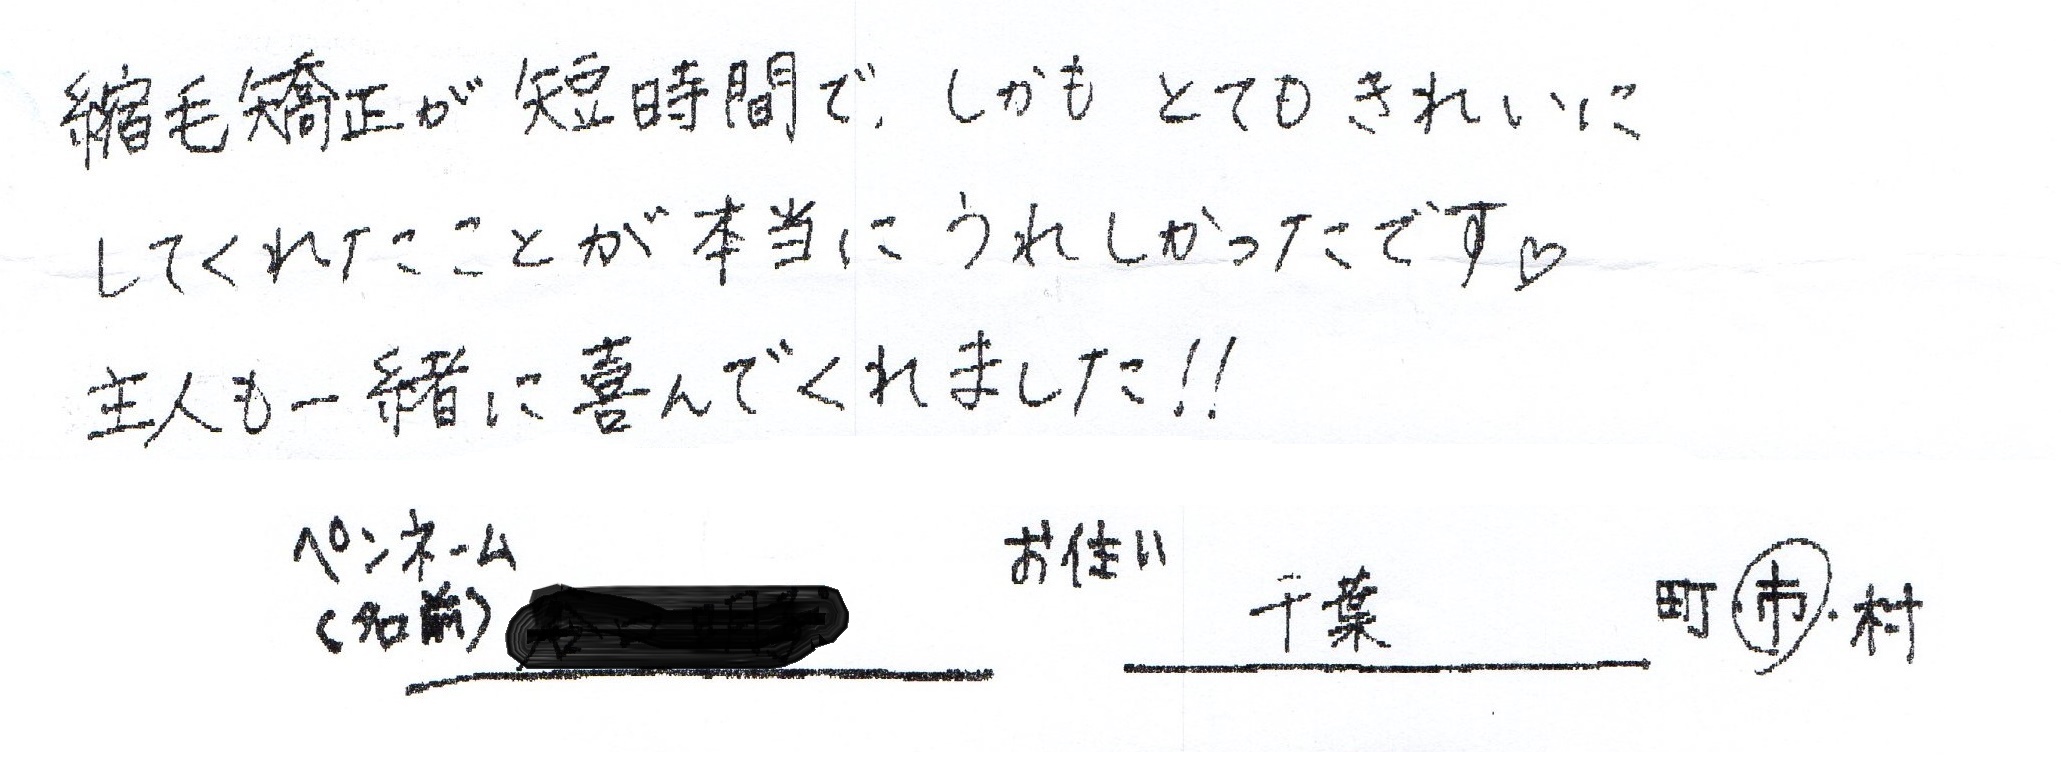 縮毛矯正が短時間で、しかもとてもきれいに
してくれたことが本当にうれしかったです♡
主人も一緒に喜んでくれました!!
ペンネーム
(名前)
お住い
千葉 町・市・村